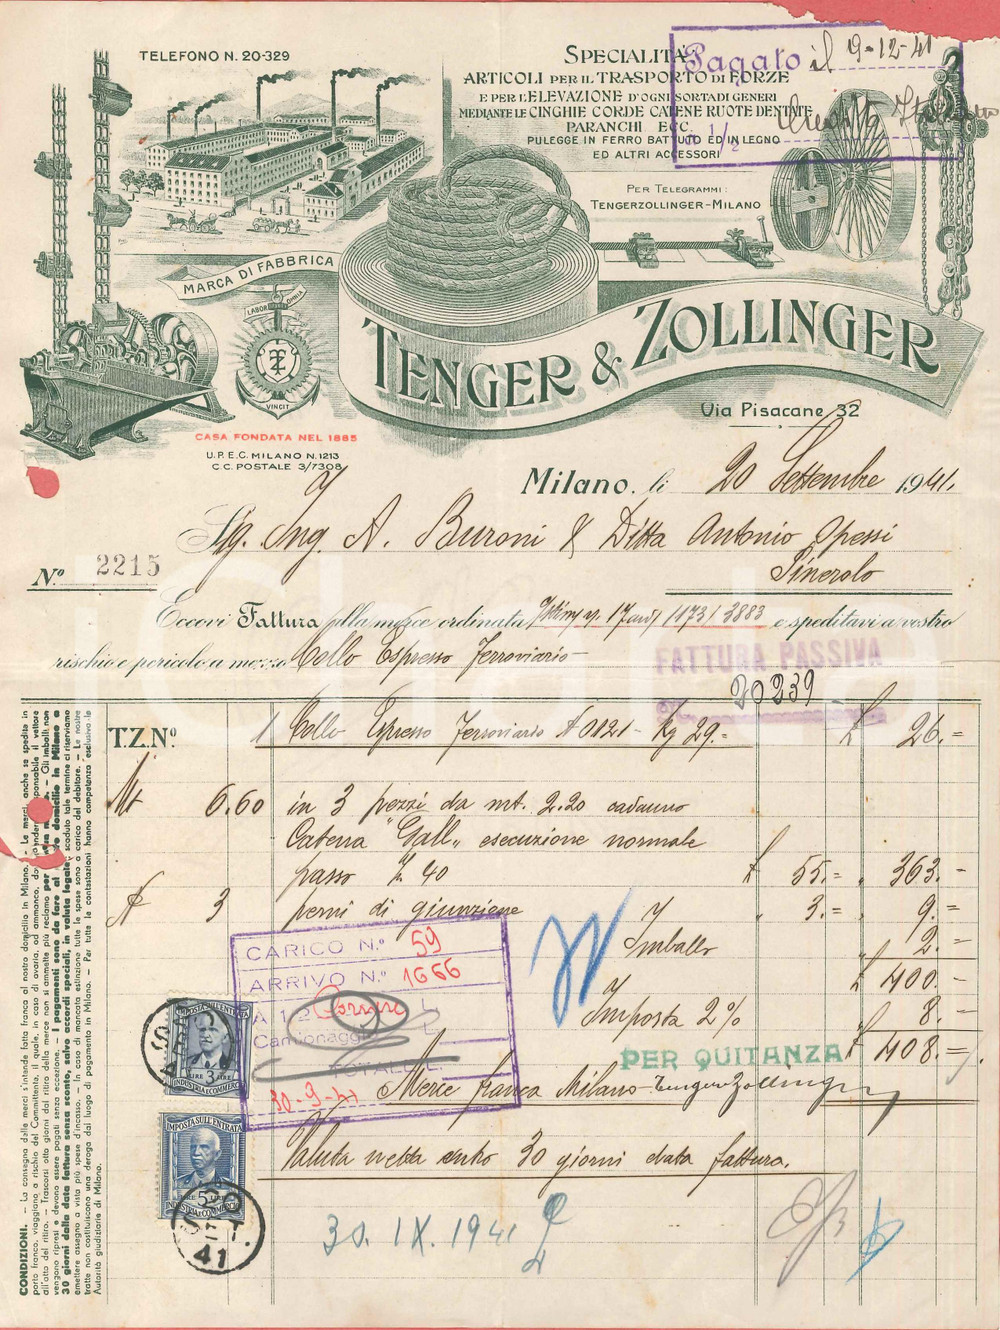 TELEFONO N. 20-329
SPECIALITÀ
ARTICOLI PER IL TRASPORTO DI FORZE
E PER L'ELEVAZIONE D'OGNI SORTA DI GENERI
MEDIANTE LE CINGHIE CORDE CATENE RUOTE DENTATE
PARANCHI ECC.
PULEGGE IN FERRO BATTUTO ED IN LEGNO
ED ALTRI ACCESSORI
Pagato il 9-12-41
Credito Italiano
1/2
PER TELEGRAMMI:
TENGERZOLLINGER-MILANO
MARCA DI FABBRICA
LABOR OMNIA
TZ
VINCIT
TENGER & ZOLLINGER
Via Pisacane 32
CASA FONDATA NEL 1885
U.P.E.C. MILANO N. 1213
C.C. POSTALE 3/7308
Milano, li 20 Settembre 1941.
Sig. Ing. A. Buroni & Ditta Antonio Spessi
Pinerolo
No. 2215
Eccovi Fattura alla merce ordinata 173/3883 e speditavi a vostro
rischio e pericolo a mezzo Collo Espresso Ferroviario
FATTURA PASSIVA
20239
T.Z.No. 1 Collo Espresso Ferroviario No 0121 - Kg 29.= £ 26.=
Mt 6.60 in 3 pezzi da mt. 2.20 cadauno
Catena "Gall" esecuzione normale
passo 40 £ 55.= 363.=
N 3 perni di giunzione 3.= 9.=
Imballo 2.=
£ 400.=
Imposta 2% 8.=
£ 408.=
CARICO N.º 59
ARRIVO N.º 1666
TOTALE L.
30-9-41
PER QUITANZA
Merce franca Milano - Tenger Zollinger
Valuta netta entro 30 giorni data fattura.
30. IX. 1941
IMPOSTA SULL'ENTRATA
LIRE 3 LIRE
INDUSTRIA E COMMERCIO
IMPOSTA SULL'ENTRATA
LIRE 5 LIRE
INDUSTRIA E COMMERCIO
20 SET. 41
CONDIZIONI. – La consegna delle merci s'intende fatta franca al nostro domicilio in Milano. – Le merci, anche se spedite in
porto franco, viaggiano a rischio del Committente, il quale, in caso di avaria, od ammanco, dovrà
all'atto del ritiro. – Trascorsi otto giorni dal ritiro della merce non si ammette più reclamo – Gli imballi non
vengono ripresi e devono essere pagati senza eccezione. – I pagamenti sono da fare al domicilio in Milano a
30 giorni dalla data fattura senza sconto, salvo accordi speciali, in valuta legale; scaduto tale termine ci riserviamo
emettere assegno a vista più spese d'incasso. – In caso di mancata estinzione tutte le spese sono a carico del debitore. – Le nostre
tratte non costituiscono una deroga dal luogo di pagamento in Milano. – Per tutte le contestazioni hanno competenza esclusiva le
Autorità giudiziarie di Milano.